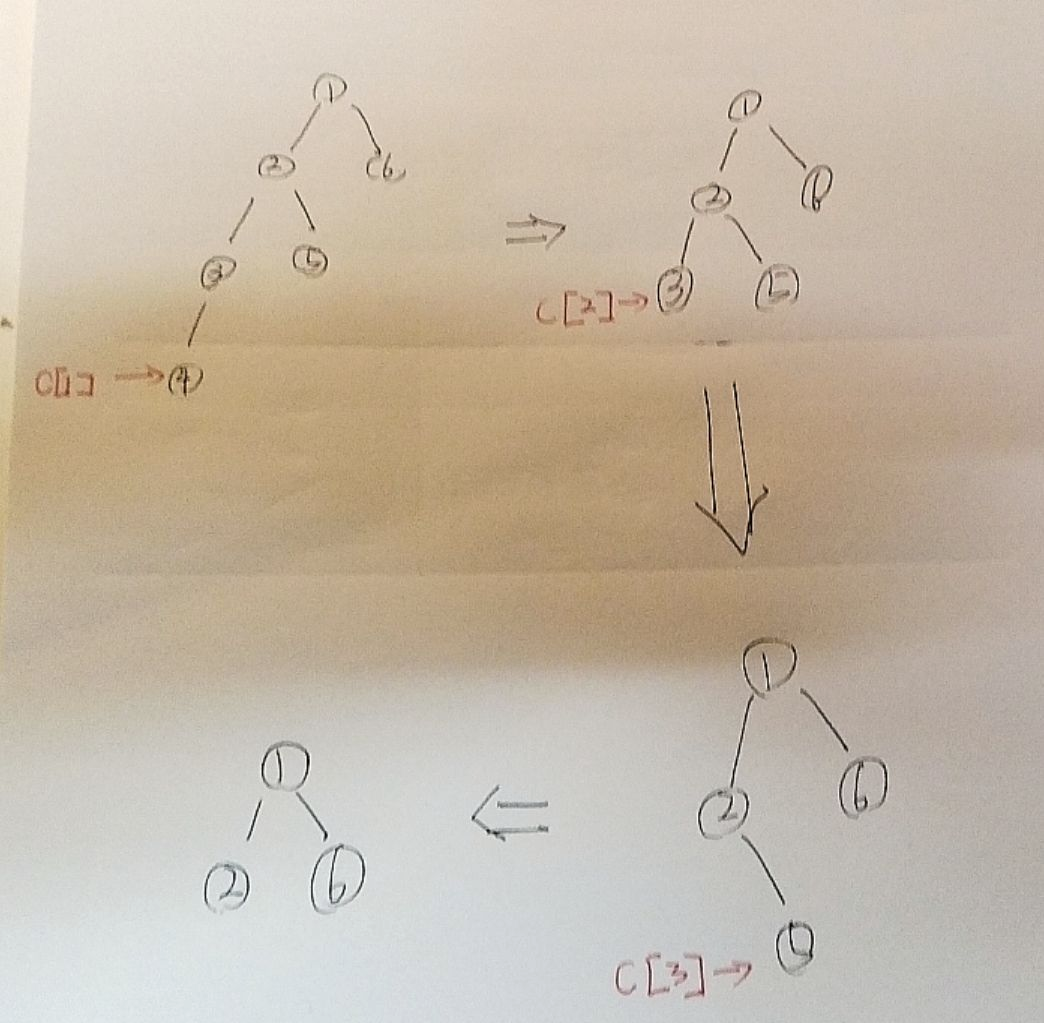 1
2 6
3 5
C[1] → 4
⇒
1
2 6
C[2] → 3 5
⇓
1
2 6
C[3] → 5
⇐
1
2 6